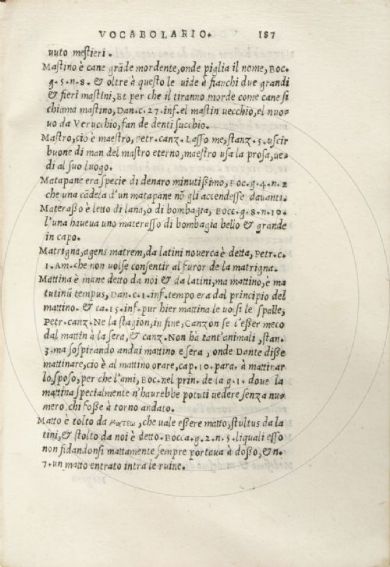 VOCABOLARIO. 187
vuto mestieri.
Mastino è cane grāde mordente, onde piglia il nome, BOC.
g. 5. n. 8. & oltre à questo le uide à fianchi due grandi
& fieri mastini, Et per che il tiranno morde come cane si
chiama mastino, DAN. c. 27. inf. el mastin uecchio, el nuo
uo da Verucchio, fan de denti succhio.
Mastro, cio è maestro, PETR. canz. Lasso me, stanz. 5. uscir
buone di man del mastro eterno, maestro usa la prosa, ue
di al suo luogo.
Matapane era specie di denaro minutissimo, BOC. g. 4. n. 2
che una cādela d'un matapane nō gli accendesse dauanti.
Materasso è letto di lana, ò di bombagia, BOCC. g. 8. n. 10.
l'una haueua uno materasso di bombagia bello & grande
in capo.
Matrigna, agens matrem, da latini nouerca è detta, PETR. c.
1. AM. che non uolse consentir al furor de la matrigna.
Mattina è inane detto da noi & da latini, ma mattino, è ma
tutinū tempus, DAN. c. 1. inf. tempo era dal principio del
mattino. & ca. 15. inf. pur hier mattina le uolsi le spalle,
PETR. canz. Ne la stagion, in fine, Canzon se l'esser meco
dal mattin à la sera, & canz. Non hà tant'animali, stan.
3. ma sospirando andai mattino e sera, onde Dante disse
mattinare, cio è al mattino orare, cap. 10. para. à mattinar
lo sposo, per che l'ami, BOC. nel prin. de la g. 1. doue la
mattina spetialmente n'haurebbe potuti uedere senza nu
mero chi fosse à torno andato.
Matto è tolto da ματτεω, che uale essere matto, stultus da la
tini, & stolto da noi è detto. BOCCA. g. 2. n. 5. liquali esso
non fidandosi mattamente sempre portaua à dosso, & n.
7. un matto entrato intra le ruine.